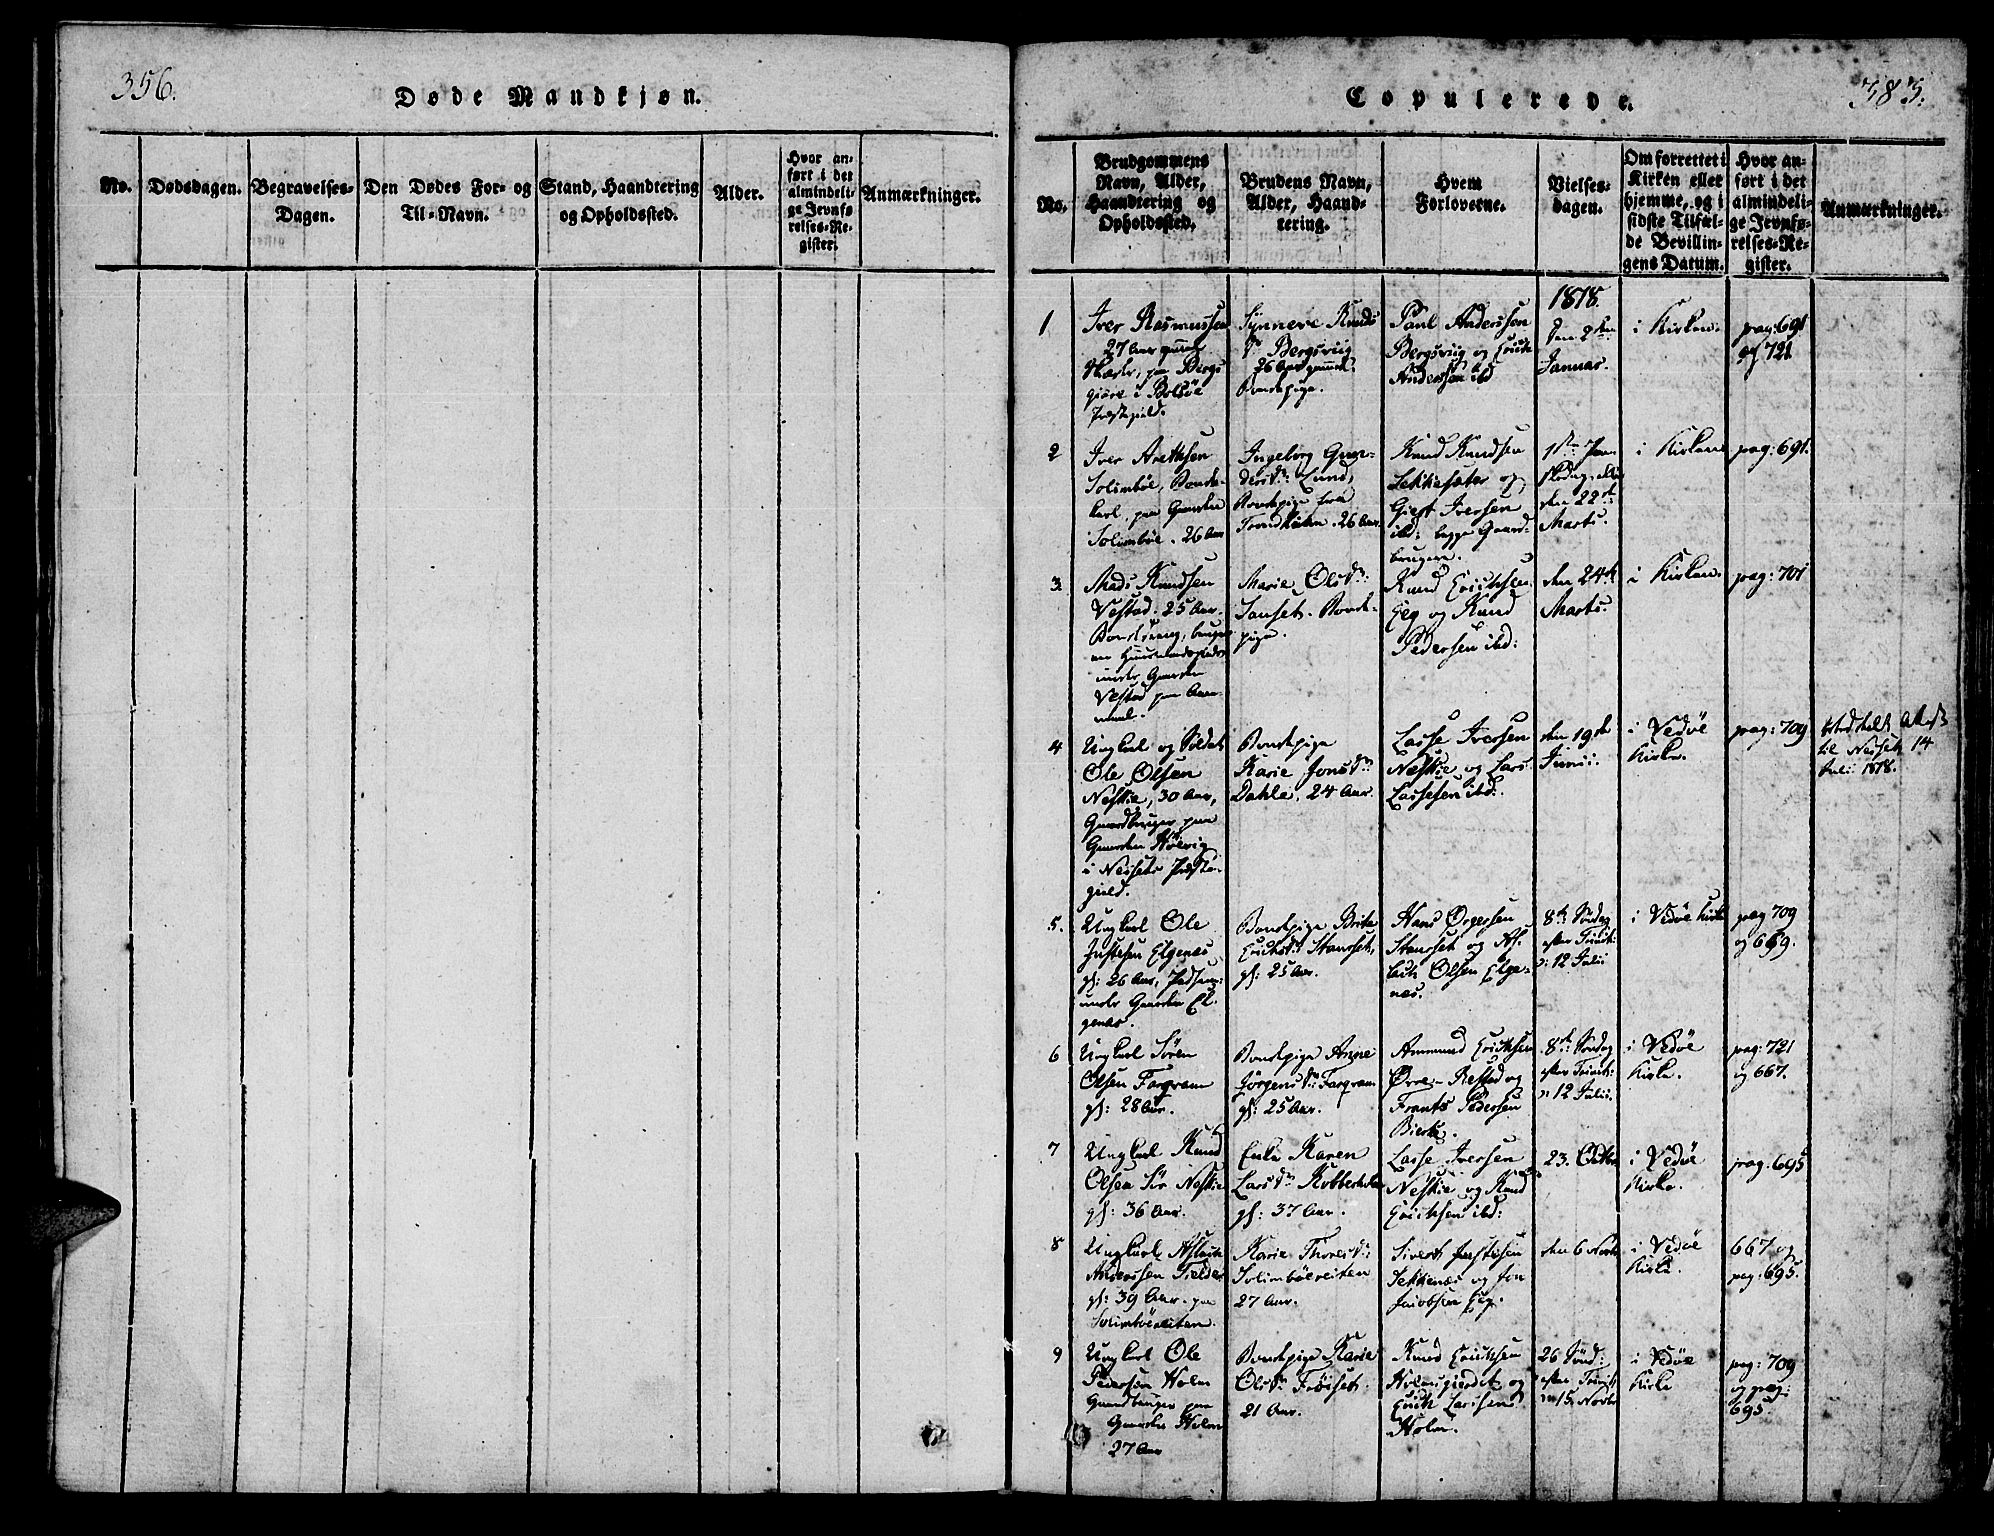 356.
Døde Mandkjøn.
No.
Dødsdagen.
Begravelses-
Dagen.
Den Dødes For- og
Til-Navn.
Stand, Haandtering
og Opholdssted.
Alder.
Hvor an-
ført i det
almindeli-
ge Jevnfø
relses-Re-
gister.
Anmærkninger.
Copulerede.
383.
No.
Brudgommens
Navn, Alder,
Haandtering og
Opholdssted.
Brudens Navn,
Alder, Haand-
tering.
Hvem
Forloverne.
Vielses-
dagen.
Om forrettet i
Kirken eller
hjemme, og i
sidste Tilfæl-
de Bevillin-
gens Datum.
Hvor an-
ført i det
almindeli-
ge Jevnfø-
relses-Re-
gister.
Anmærkninger.
1
Iver Rasmussen
27 Aar
paa Bergs
giøre i Bolsöe
Præstegield.
Synneve Knuds
Dr. Bergsviig
26 Aar
Bondepige.
Paul Anderssøn
Bergsviig og Erich
Anderssøn ibd
1818.
den 2den
Januar.
i Kirken.
pag: 691
og 721
2
Iver Arethsen
Solimböe, Bonde-
karl, paa Gaarden
Solimböe. 26 Aar
Ingeborg Gun-
dersdr: Lund,
Bondepige fra
Trondhiem. 26 Aar.
Knud Knudsen
Sekkesæter og
Giert Iversen
ibd: begge Gaard-
brugere.
den 22de
Marts.
i Kirken
pag: 691.
3.
Mads Knudsen
Vestad. 25 Aar.
under Gaarden
Vestad paa Aure
Marie Olsdr:
Sanset. Bonde-
pige.
Knud Erichsen
Eeg og Knud
Pedersen ibd:
den 24de
Marts.
i Kirken.
pag: 701
4
Ungkarl og Soldat
Ole Olsen
Neskie, 30 Aar,
Gaardbruger paa
Gaarden Kölvig
i Nessets Præste-
gield.
Bondepige
Karie Jonsdr
Dahle, 24 Aar.
Lasse Iversen
Neskie og Lars
Lassesen ibd:
den 19de
Junii.
i Vedöe
Kirke.
pag: 709
Attest
til Nesset 14
Juli 1818.
5.
Ungkarl Ole
Justesen Elgenes
gl: 26 Aar,
under Gaarden El-
genes.
Bondepige Brite
Erichsdr: Stanset,
gl: 25 Aar.
Hans Orgersen
Stanset og As-
lack Olsen Elge-
nes.
8de Søndag
efter Trinit:
12 Julii
i Vedöe Kirke
pag 709
og 669.
6
Ungkarl Sören
Olsen Fargram
gl: 28 Aar.
Bondepige Anne
Jörgensdr: Fargram
gl: 25 Aar.
Ammund Erichsen
Örre-Restad og
Frants Pedersen
Bierke.
8de Søndag
efter Trinit:
12 Julii.
i Vedöe
Kirke.
pag: 721
og 667.
7
Ungkarl Knud
Olsen Sör Neskie
gl: 36 Aar.
Enke Karen
Larsdr Kobberholm
gl: 37 Aar.
Lasse Iversen
Neskie og Knud
Erichsen ibd:
23. Octbr
i Vedöe
Kirke.
pag. 695
8
Ungkarl Aslach
Anderssen Tielder
gl: 39 Aar. paa
Solimböeeiten.
Karie Thoresdr:
Solimböeeiten
27 Aar.
Sivert Justesen
Sekkenes og Jon
Jacobsen Eeg.
den 6 Novbr
i Vedöe
Kirke.
667 og
pag: 695.
9
Ungkarl Ole
Pedersen Holm
Gaardbruger paa
Gaarden Holm
27 Aar
Bondepige Karie
Olsdr Fröiset
21 Aar.
Knud Erichsen
Holmsgierdet og
Erich Larssen
Holm.
26 Sönd:
efter Trinit:
15 Novbr
i Vedöe
Kirke
pag: 709
og pag:
695